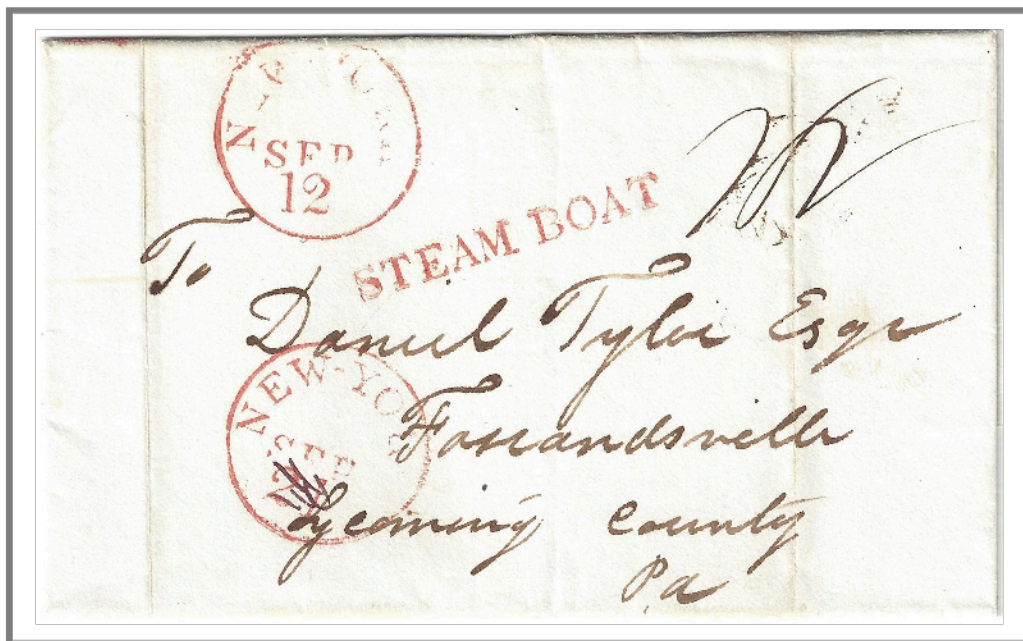 NEW-YORK
SEP
12
STEAM BOAT
To
Daniel Tyler Esqr
NEW-YORK
Farrandsville
Lycoming County
Pa